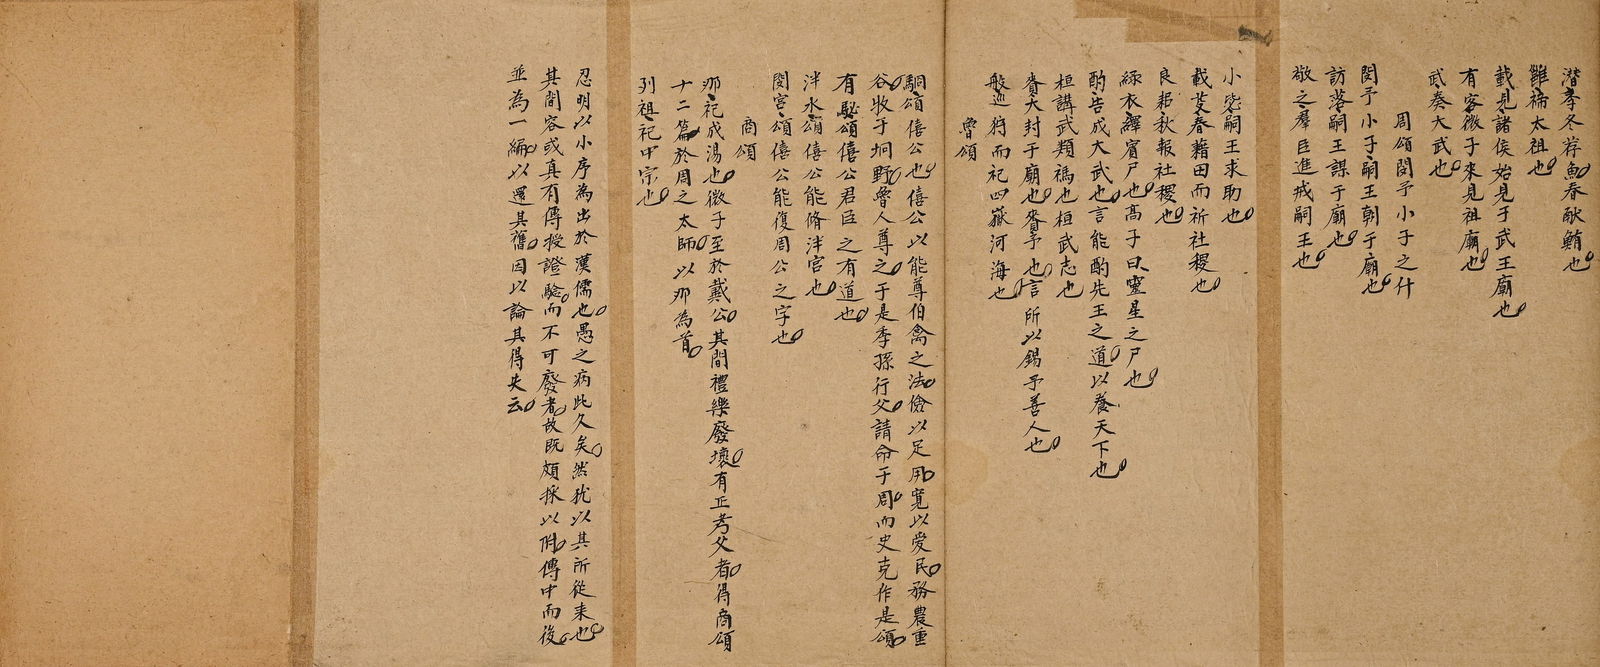 潛季冬荐魚春献鮪也
雝禘太祖也
載見諸侯始見于武王廟也
有客微子来見祖廟也
武奏大武也
周頌閔予小子之什
閔予小子嗣王朝于廟也
訪落嗣王謀于廟也
敬之羣臣進戒嗣王也
小毖嗣王求助也
載芟春藉田而祈社稷也
良耜秋報社稷也
絲衣繹賓尸也高子曰靈星之尸也
酌告成大武也言能酌先王之道以養天下也
桓講武類禡也桓武志也
賚大封于廟也賚予也言所以錫予善人也
般巡狩而祀四嶽河海也
魯頌
駉頌僖公也僖公以能尊伯禽之法儉以足用寬以愛民務農重
谷牧于坰野魯人尊之于是季孫行父請命于周而史克作是頌
有駜頌僖公君臣之有道也
泮水頌僖公能脩泮宮也
閟宮頌僖公能復周公之字也
商頌
那祀成湯也微子至於戴公其間禮樂廢壞有正考父者得商頌
十二篇於周之太師以那為首
列祖祀中宗也
忍明以小序為出於漢儒也愚之病此久矣然犹以其所從来也
其間容或真有傳授證驗而不可廢者故既頗採以附傳中而後
並為一編以還其舊因以論其得失云